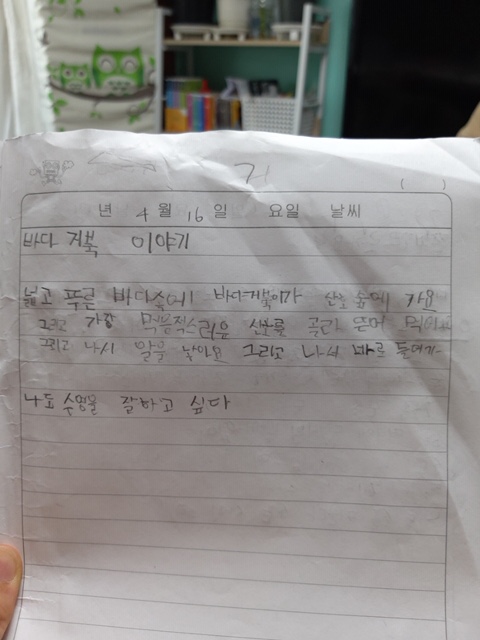 거
( )
년 4월 16일 요일 날씨
바다 거북 이야기
넓고 푸른 바다숲에 바다거북이가 산호 숲에 가요
그리고 가장 먹음직스러운 산호를 골라 뜯어 먹어요
그리고 나서 알을 낳아요 그리고 나서 바로 들어가
나도 수영을 잘하고 싶다